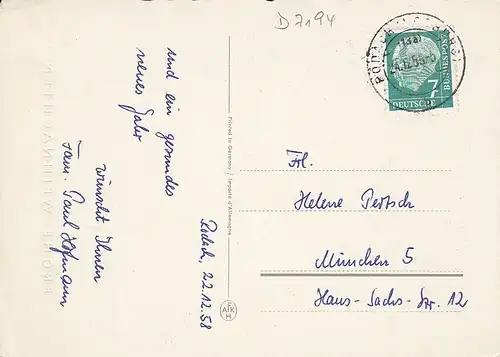 D 7194
und ein gesundes
neues Jahr
wünscht Ihnen
Fam. Paul Hofmann
Rodach, 22.12.58
Printed in Germany / Importé d'Allemagne
AKH
RODACH
(13a)
7
DEUTSCHE
BUNDESPOST
Frl.
Helene Pertsch
München 5
Hans-Sachs-Str. 12